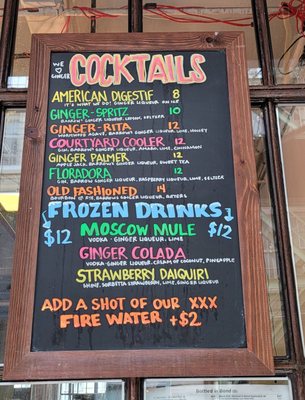 WE
♡
GINGER
COCKTAILS
AMERICAN DIGESTIF 8
IT'S WHAT WE DO! GINGER LIQUEUR ON ICE
GINGER-SPRITZ 10
BARROW'S GINGER LIQUEUR, LEMON, SELTZER
GINGER-RITA 12
AGAVE, BARROWS GINGER LIQUEUR, LIME, HONEY
COURTYARD COOLER 12
GIN, BARROWS GINGER LIQUEUR, LEMON, CINNAMON
GINGER PALMER 12
APPLE JACK, BARROWS GINGER LIQUEUR, SWEET TEA
FLORADORA 12
GIN, BARROW GINGER LIQUEUR, RASPBERRY LIQUEUR, LIME, SELTZER
OLD FASHIONED 14
BOURBON OR RYE, BARROWS GINGER LIQUEUR, BITTERS
FROZEN DRINKS
$12 MOSCOW MULE $12
VODKA · GINGER LIQUEUR, LIME
GINGER COLADA
VODKA · GINGER LIQUEUR · CREAM OF COCONUT, PINEAPPLE
STRAWBERRY DAIQUIRI
SORBETTA STRAWBERRY, LIME, GINGER LIQUEUR
ADD A SHOT OF OUR XXX
FIRE WATER +$2